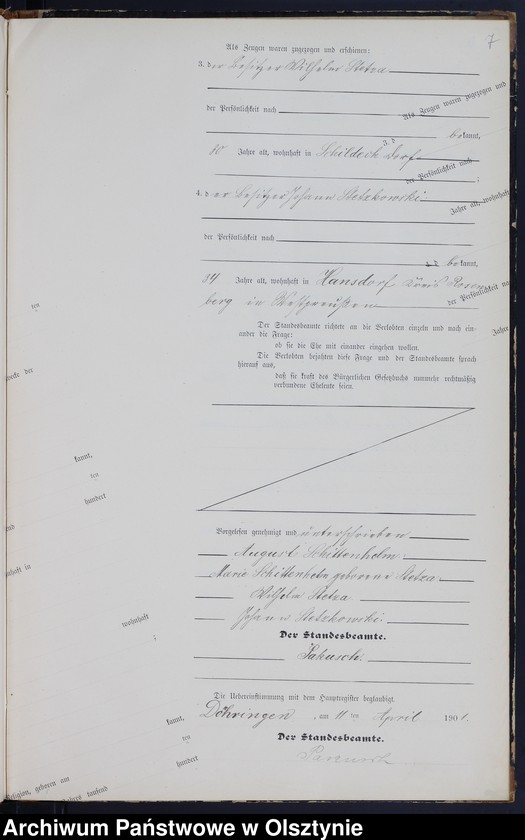 7
Als Zeugen waren zugezogen und erschienen:
3. der Besitzer Wilhelm Stetza
der Persönlichkeit nach
bekannt,
Jahre alt, wohnhaft in Schildeck Dorf
4. der Besitzer Johann Stetzkowski
der Persönlichkeit nach
bekannt,
34 Jahre alt, wohnhaft in Hansdorf Kreis Rosen
berg in Westpreußen
Der Standesbeamte richtete an die Verlobten einzeln und nach ein-
ander die Frage:
ob sie die Ehe mit einander eingehen wollen.
Die Verlobten bejahten diese Frage und der Standesbeamte sprach
hierauf aus,
daß sie kraft des Bürgerlichen Gesetzbuchs nunmehr rechtmäßig
verbundene Eheleute seien.
Vorgelesen, genehmigt und unterschrieben
August Schittenhelm
Marie Schittenhelm geborene Stetza
Wilhelm Stetza
Johann Stetzkowski
Der Standesbeamte.
Die Uebereinstimmung mit dem Hauptregister beglaubigt.
Döhringen, am 11 ten April 1901.
Der Standesbeamte.
Als Zeugen waren zugezogen und
der Persönlichkeit nach
Jahre alt, wohnhaft
der Persönlichkeit na
Jahre
ten
zwecke der
kannt,
ten
hundert
und
wohnhaft in
wohnhaft
;
kannt,
ten
hundert
Religion, geboren am
Jahres tausend
Archiwum Państwowe w Olsztynie